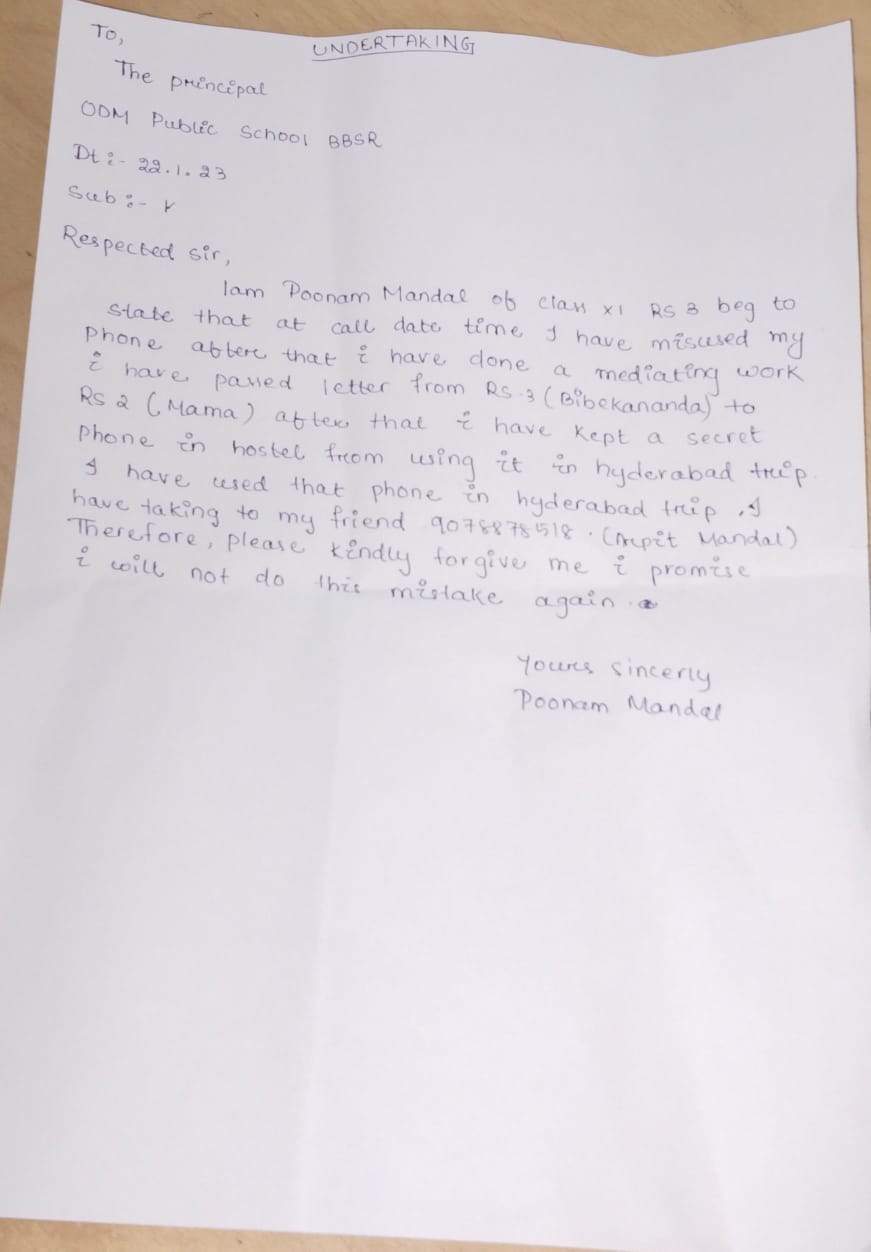 To,
UNDERTAKING
The principal
ODM Public School BBSR
Dt :- 22.1.23
Sub :-
Respected sir,
Iam Poonam Mandal of class XI RS 3 beg to
state that at call date time I have misused my
phone after that i have done a mediating work
i have passed letter from RS-3 (Bibekananda) to
RS 2 (Mama) after that i have kept a secret
phone in hostel from using it in hyderabad trip.
I have used that phone in hyderabad trip . I
have taking to my friend 9078878518 . (Arpit Mandal)
Therefore, please kindly forgive me i promise
i will not do this mistake again .
Yours sincerly
Poonam Mandal